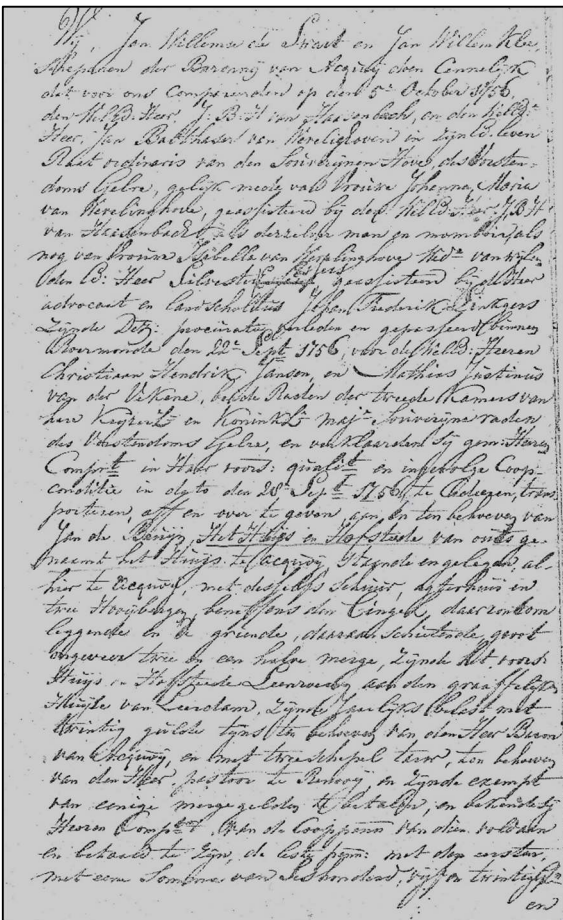 Wij, Jan Willemse de Swart en Jan Willem Klee,
Schepenen der Baronnij van Acquoij doen Connelijk
dat voor ons Compareerden op den 5e October 1756,
den WelEd: Heer, J: B: H van Haesenbach, en den WelEd:
Heer, Jan Balthasar van Wevelighoven in zijn Ed: leven
Raat ordinaris van den Souverijnen Hove des Vorsten-
doms Gelre, gelijk mede van Vrouwe Johanna, Maria
van Wevelinghove, geassisteert bij den WelEd Heer J:B:H
van Haesenbach als derzelver man en momboir, als
nog van Vrouwe Isabelle van Wevelinghove Wede van wijlen
den Ed: Heer Silvester geassisteert bij d'Heer
advocaat en landscholtus Johan Frederik
Zijnde Detz: procuratie verleden en gepasseert binnen
Roermonde den 22e Sept 1756, voor de WelEd: Heeren
Christiaan Hendrik Jansen, en Mathias Justinus
van der Vekene, beide Raden der tweede Kamers van
hare Keijzerl: en Koninkl: maj:t Souverijne raden
des Vorstendoms Gelre, en verklaarden dij gem: Heeren
Compt in Haer voors: qualit: en ingevolge Coop-
conditie in dato den 28e Sept 1756, te trans-
porteren, aff en over te geven, aan en ten behoeve van
Jan de Bruijn, Het Huijs en Hofstede van outs ge-
naamt het Huijs te Acquoij, staande en gelegen, al-
hier te Acquoij, met desselfs Schuur, agterhuis en
twee Hooijbergen, beneffens den Cingel, daar rontom
leggende en de griende, daaraan schietende, groot
ongeveer twee en een halve merge, zijnde het voors:
Huijs en Hoffstede Leenroerig aan den graaffelijke
Huijse van Leerdam, Zijnde jaarlijks belast met
twintig gulde tyns ten behoeve van den Heer Baron
van Acquoij, en met twee schepel terw, ten behoeve
van den Heer pastoor te Renoij, en zijnde exempt
van eenige mergegelden te betalen, en bekende dij
Heeren Compten van de Cooppenn: van dien voldaen
en betaalt te zijn, de leste penn: met den eersten,
met eene Somme van Seshondert, vijf en twintig
en